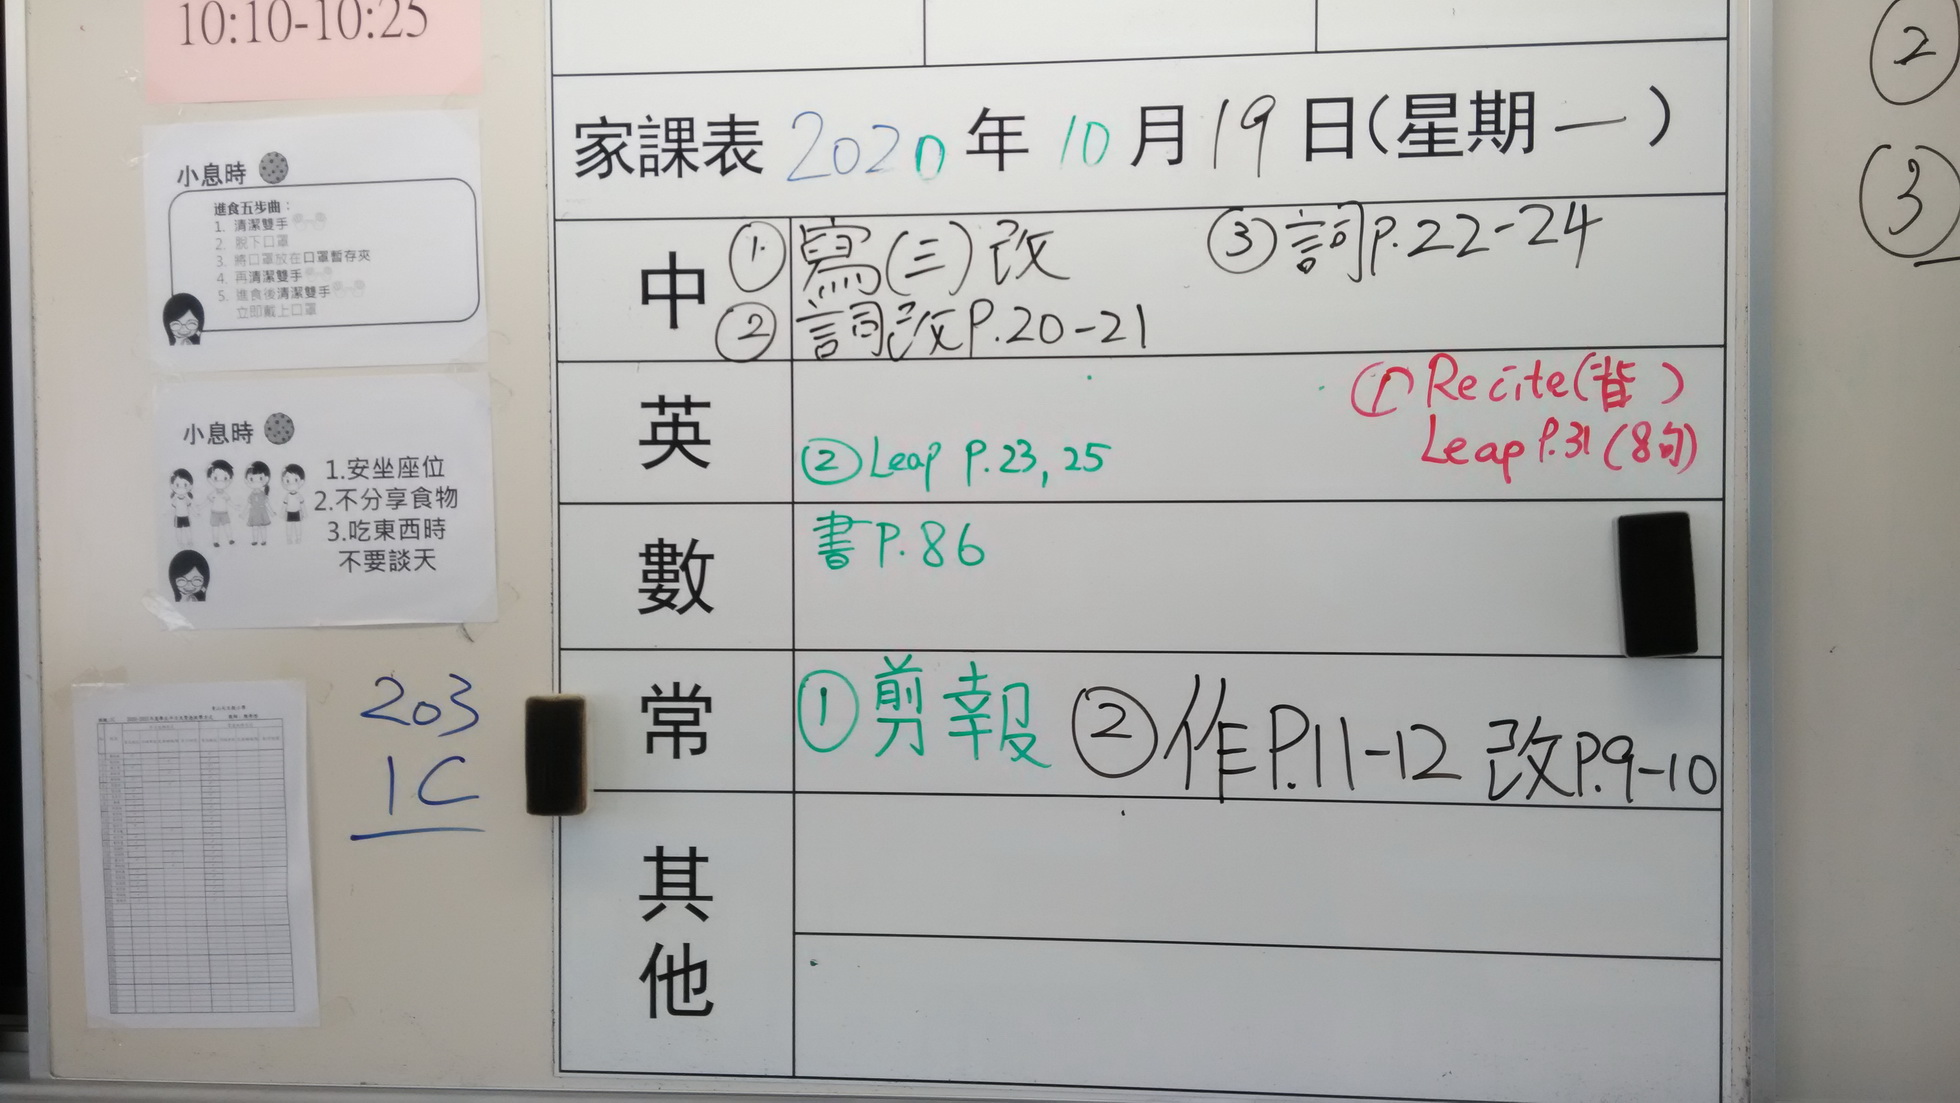 10:10-10:25
小息時
進食五步曲：
1. 清潔雙手
2. 脫下口罩
3. 將口罩放在口罩暫存夾
4. 再清潔雙手
5. 進食後清潔雙手
立即戴上口罩
小息時
1.安坐座位
2.不分享食物
3.吃東西時
不要談天
203
1C
家課表 2020 年 10 月 19 日(星期一)
中 ① 寫(三)改 ③ 詞P.22-24
② 詞改P.20-21
英 ① Recite(背)
Leap P.31 (8句)
② Leap P.23, 25
數 書P.86
常 ①剪報 ②作P.11-12 改P.9-10
其
他
②
③